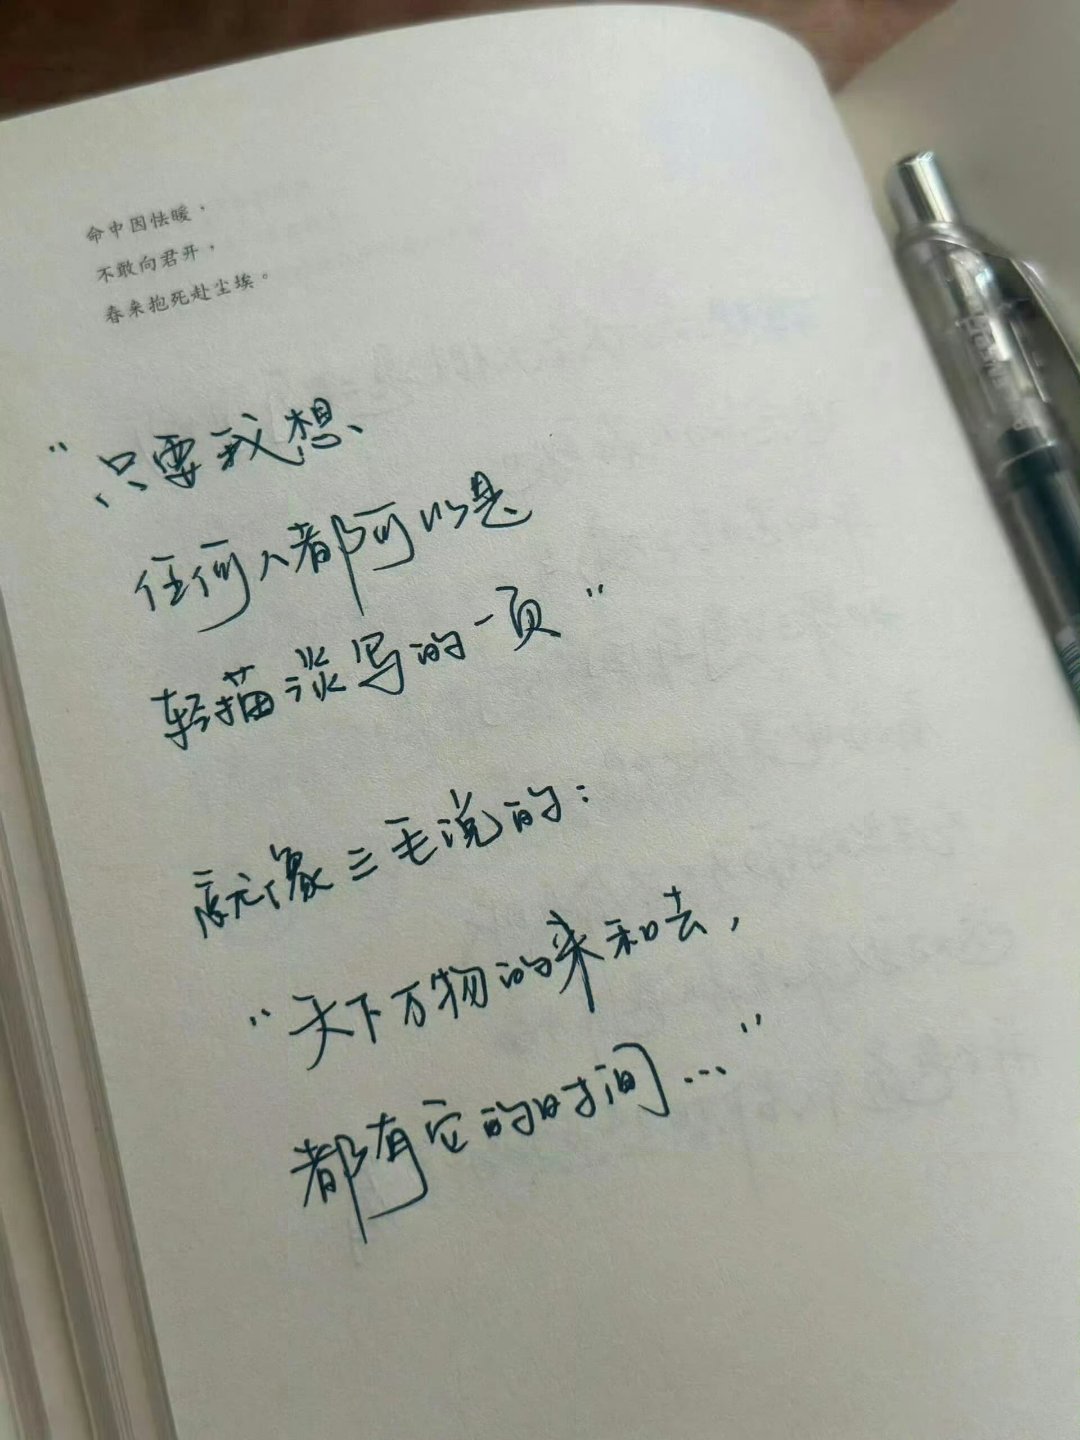 命中因怯暖，
不敢向君开，
春来抱死赴尘埃。
“只要我想、
任何人都可以是
轻描淡写的一页”
就像三毛说的：
“天下万物的来和去，
都有它的时间…”